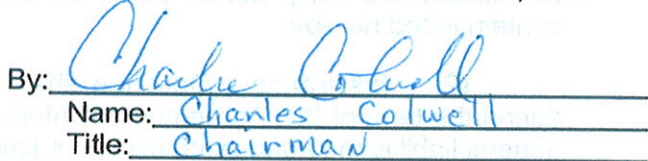 By: Charlie Colwell
Name: Charles Colwell
Title: Chairman